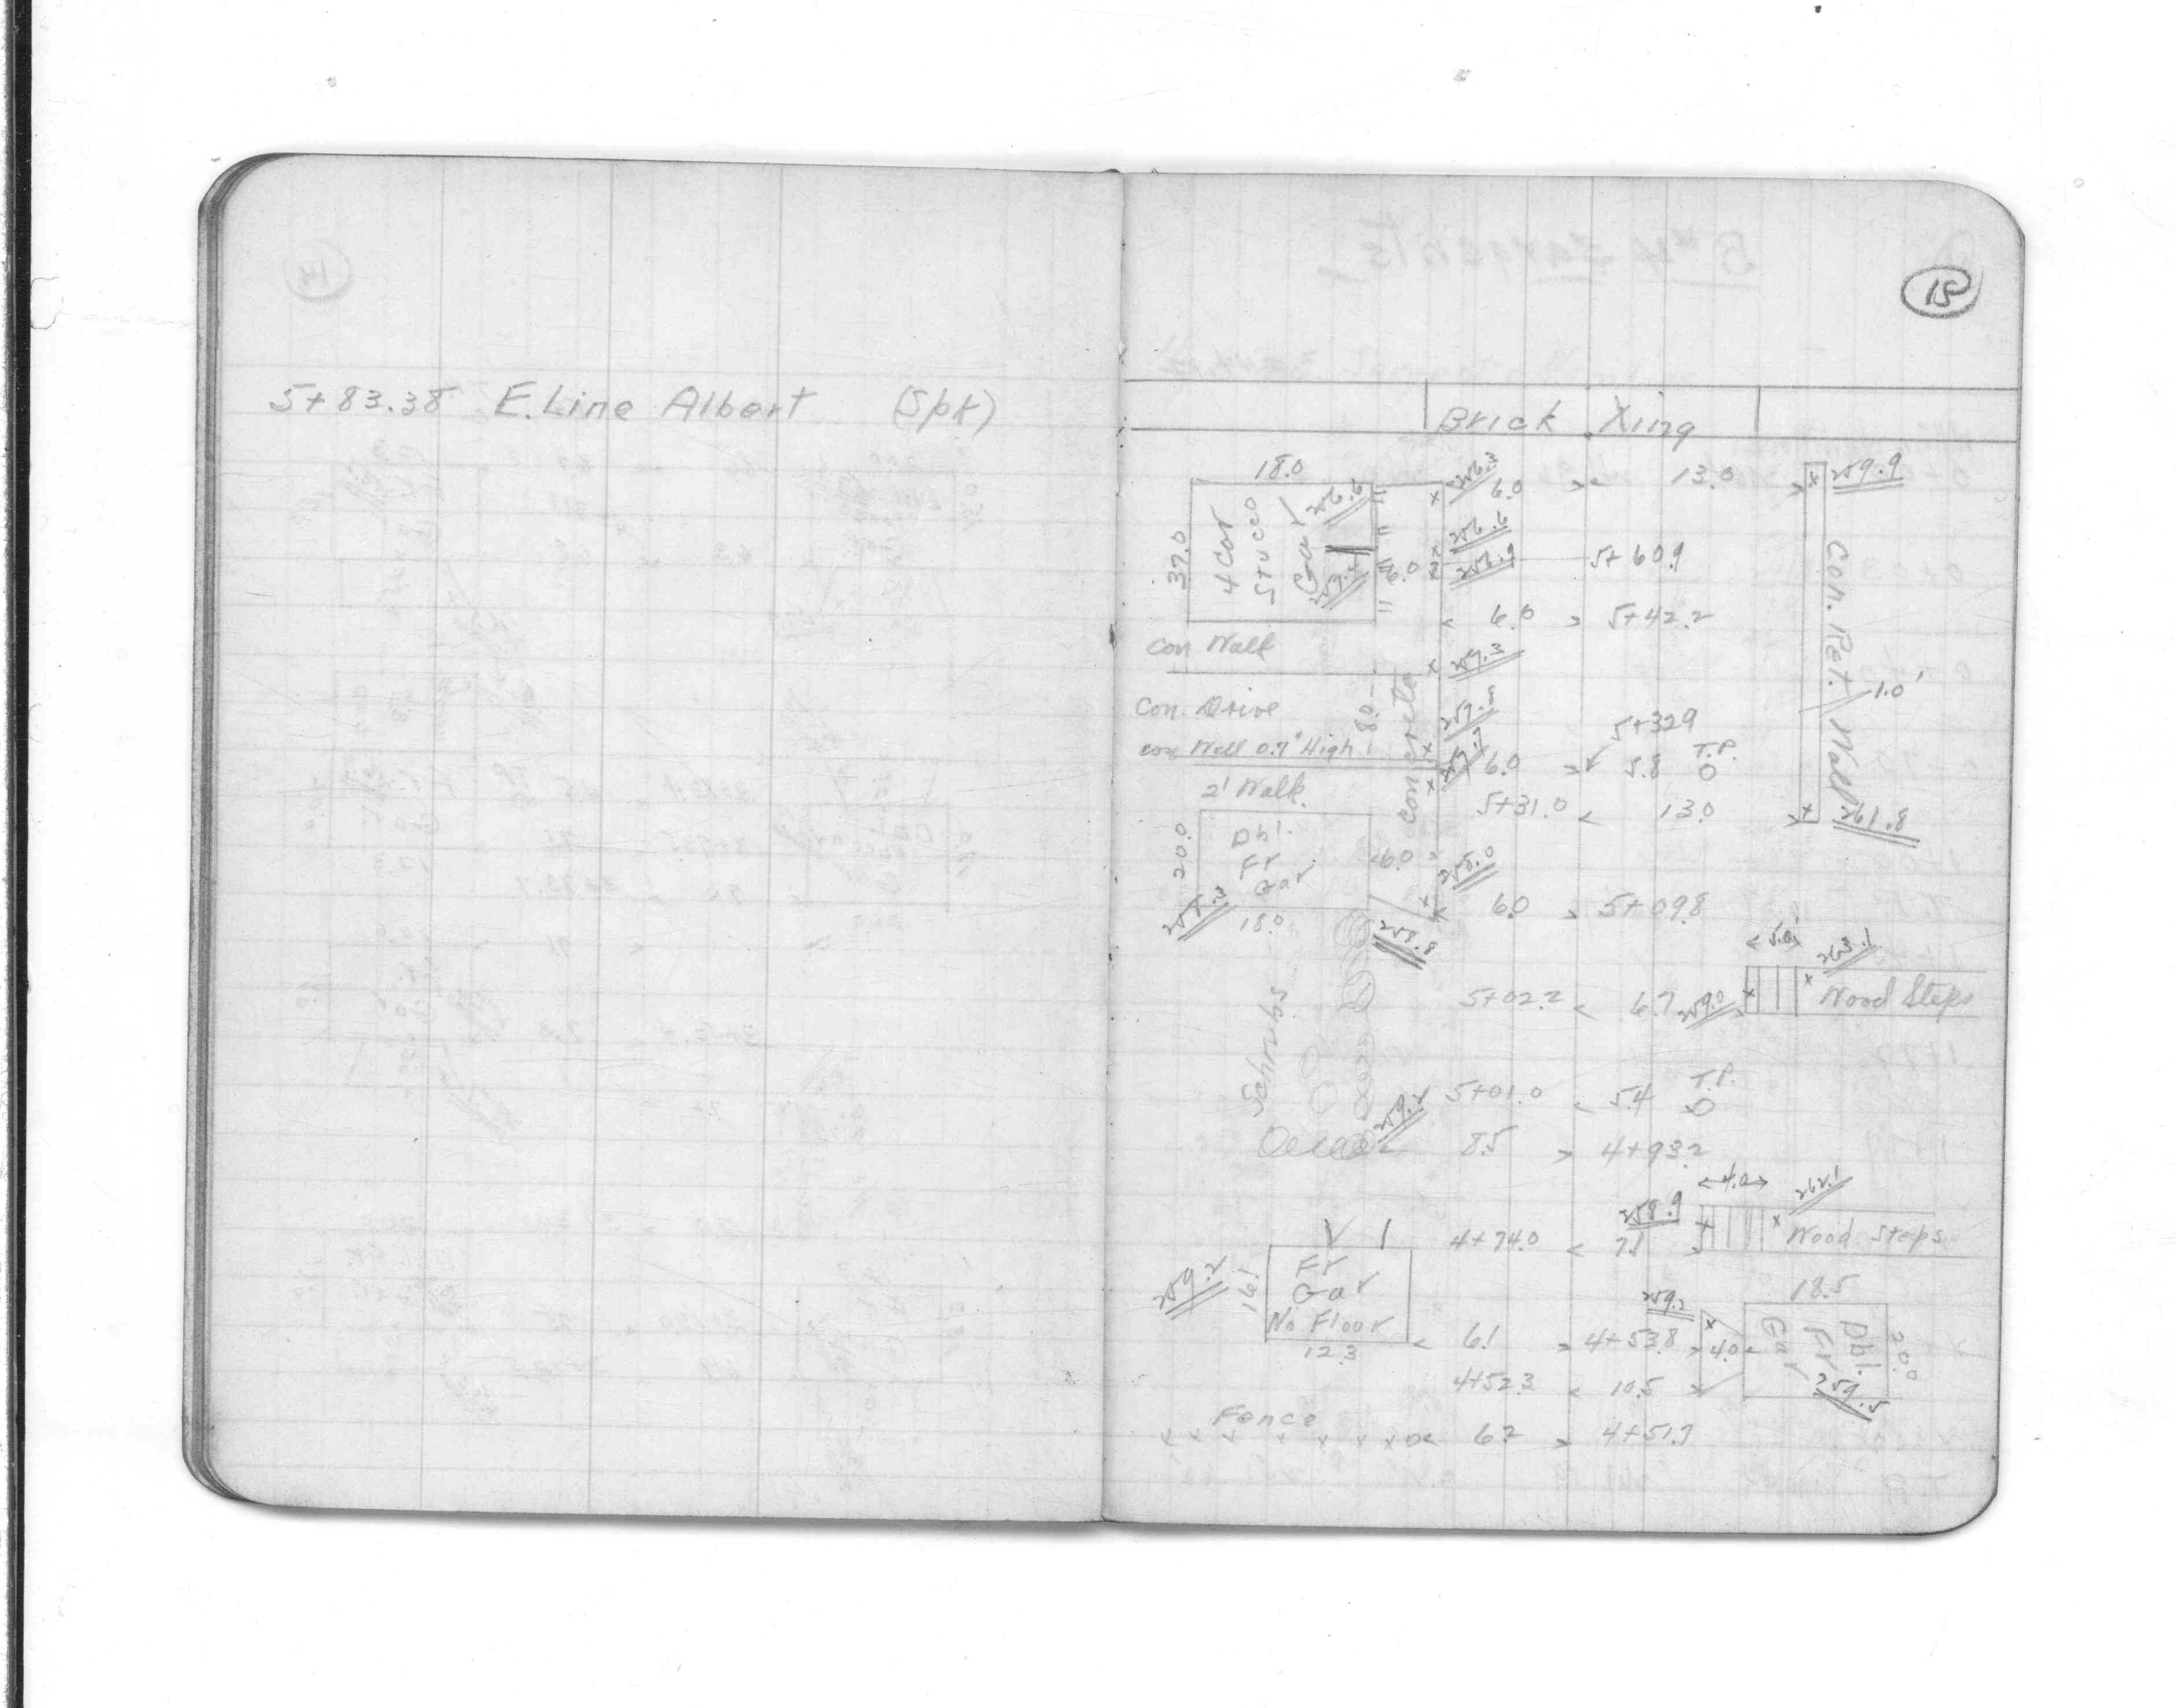 5+83.38 E. Line Albert (Spk)
15
Brick Xing
18.0
256.3
6.0
13.0
259.9
37.0
4 Car
Stucco
Gar
256.6
256.6
256.9
6.0
5+60.9
6.0 5+42.2
Con. Ret. Wall
1.0'
Con Wall
257.3
Con. Drive
8.0
concrete
5+32.9
con Wall 0.7" High
6.0
5.8
T.P.
2' Walk
5+31.0
13.0
261.8
20.0
Dbl.
Fr
Gar
6.0
258.0
18.0
258.8
6.0 5+09.8
5.0'
263.1
5+02.2 6.7 259.0
Wood Steps
Schrubs
5+01.0 5.4
T.P.
259.2
8.5 4+93.2
4.0
262.1
258.9
4+74.0 7.1
Wood Steps
259.2
16.1
Fr
Gar
No Floor
12.3
6.1 4+53.8
259.2
4.0
18.5
Dbl.
Fr
Gar
20.0
259.5
4+52.3 10.5
Fence
6.2 4+51.7